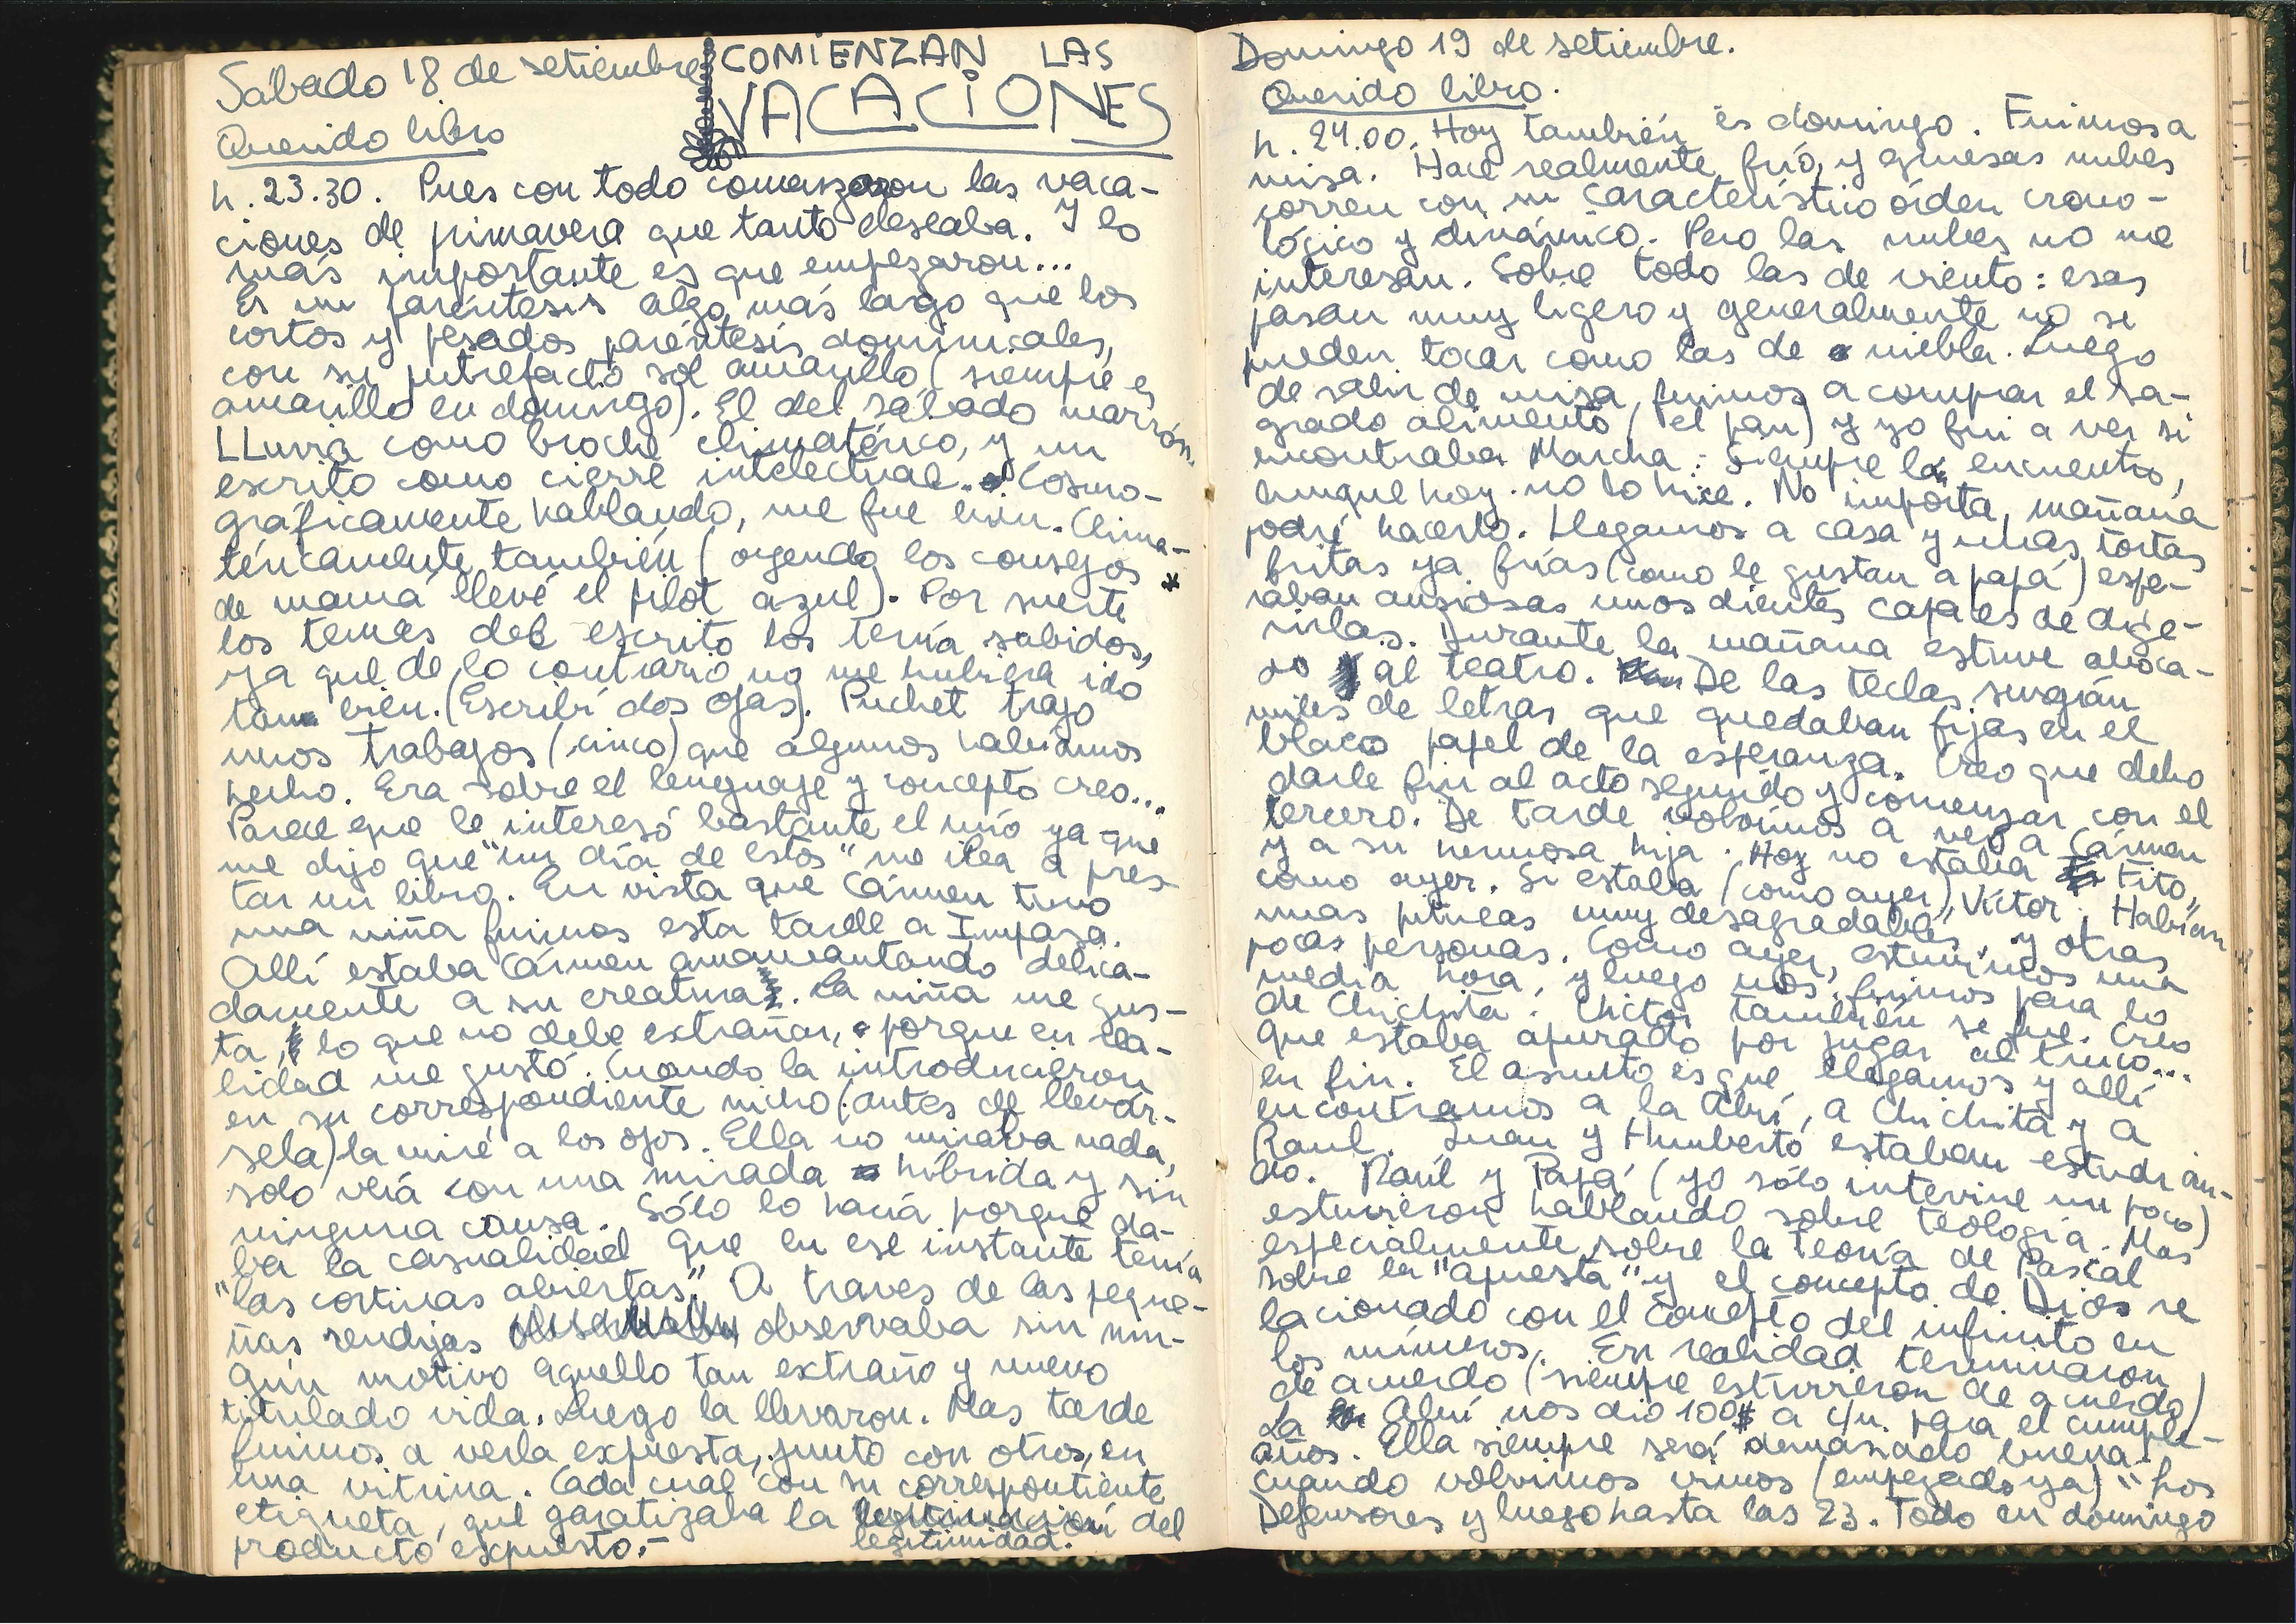 Sábado 18 de setiembre
COMIENZAN LAS
VACACIONES
Querido libro
h. 23.30. Pues con todo comenzaron las vaca-
ciones de primavera que tanto deseaba. Y lo
más importante es que empezaron...
Es un paréntesis algo más largo que los
cortos y pesados paréntesis dominicales,
con su putrefacto sol amarillo (siempre es
amarillo en domingo). El del sábado marrón.
LLuvia como broche climatérico, y un
escrito como cierre intelectual. Cosmo-
gráficamente hablando, me fue bien. Clima-
téricamente también (oyendo los consejos *
de mamá llevé el pilot azul). Por suerte
los temas del escrito los tenía sabidos,
ya que de lo contrario no me hubiera ido
tan bien. (Escribí dos ojas). Puchet trajo
unos trabajos (cinco) que algunos habíamos
hecho. Era sobre el lenguaje y concepto creo...
Parece que le interesó bastante el mío ya que
me dijo que "un día de estos" me iba a pres-
tar un libro. En vista que Cármen tuvo
una niña fuimos esta tarde a Impasa.
Allí estaba Cármen amamantando delica-
damente a su creatura. La niña me gus-
ta, lo que no debe extrañar, porque en rea-
lidad me gustó. Cuando la introducieron
en su correspondiente nicho (antes de llevár-
sela) la miré a los ojos. Ella no miraba nada,
solo veía con una mirada híbrida y sin
ninguna causa. Sólo lo hacía porque da-
ba la casualidad que en ese instante tenía
"las cortinas abiertas". A traves de las peque-
ñas rendijas observaba sin nin-
gún motivo aquello tan extraño y nuevo
titulado vida. Luego la llevaron. Mas tarde
fuimos a verla expuesta, junto con otros, en
una vitrina. Cada cual con su correspontiente
etiqueta, que garatizaba la legitimidad. del
producto expuesto.-
Domingo 19 de setiembre.
Querido libro.
h. 24.00. Hoy también es domingo. Fuimos a
misa. Hace realmente frío, y gruesas nubes
corren con su característico órden crono-
lógico y dinámico. Pero las nubes no me
interesan. Sobre todo las de viento: esas
pasan muy ligero y generalmente no se
pueden tocar como las de niebla. Luego
de salir de misa, fuimos a comprar el sa-
grado alimento (el pan) y yo fui a ver si
encontraba Marcha. Siempre la encuentro,
aunque hoy no lo hice. No importa, mañana
podré hacerlo. Llegamos a casa y unas tortas
fritas ya frías (como le gustan a papá) espe-
raban ansiosas unos dientes capaces de dige-
rirlas. Durante la mañana estuve aboca-
do al teatro. De las teclas surgían
miles de letras que quedaban fijas en el
blaco papel de la esperanza. Creo que debo
darle fin al acto segundo y comenzar con el
tercero. De tarde volvimos a ver a Cármen
y a su hermosa hija. Hoy no estaba Fito,
como ayer. Si estaba (como ayer) Víctor. Habían
unas pitucas "muy desagradables", y otras
pocas personas. Como ayer, estuvimos una
media hora, y luego nos fuimos para lo
de Chichita. Víctor también se fue. Creo
que estaba apurado por jugar al truco...
en fin. El asunto es que llegamos y allí
encontramos a la Abuí, a Chichita y a
Raul. Juan y Humberto estaban estudian-
do. Raúl y Papá (yo sólo intervine un poco)
estuvieron hablando sobre teología. Mas
especialmente sobre la Teoría de Pascal
sobre la "apuesta" y el concepto de Dios re
lacionado con el concepto del infinito en
los números. En realidad terminaron
de acuerdo (siempre estuvieron de acuerdo)
La Abuí nos dio 100$ a c/u. para el cumple-
años. Ella siempre será demasiado buena.
Cuando volvimos vimos (empezado ya) "Los
Defensores y luego hasta las 23. Todo en domingo